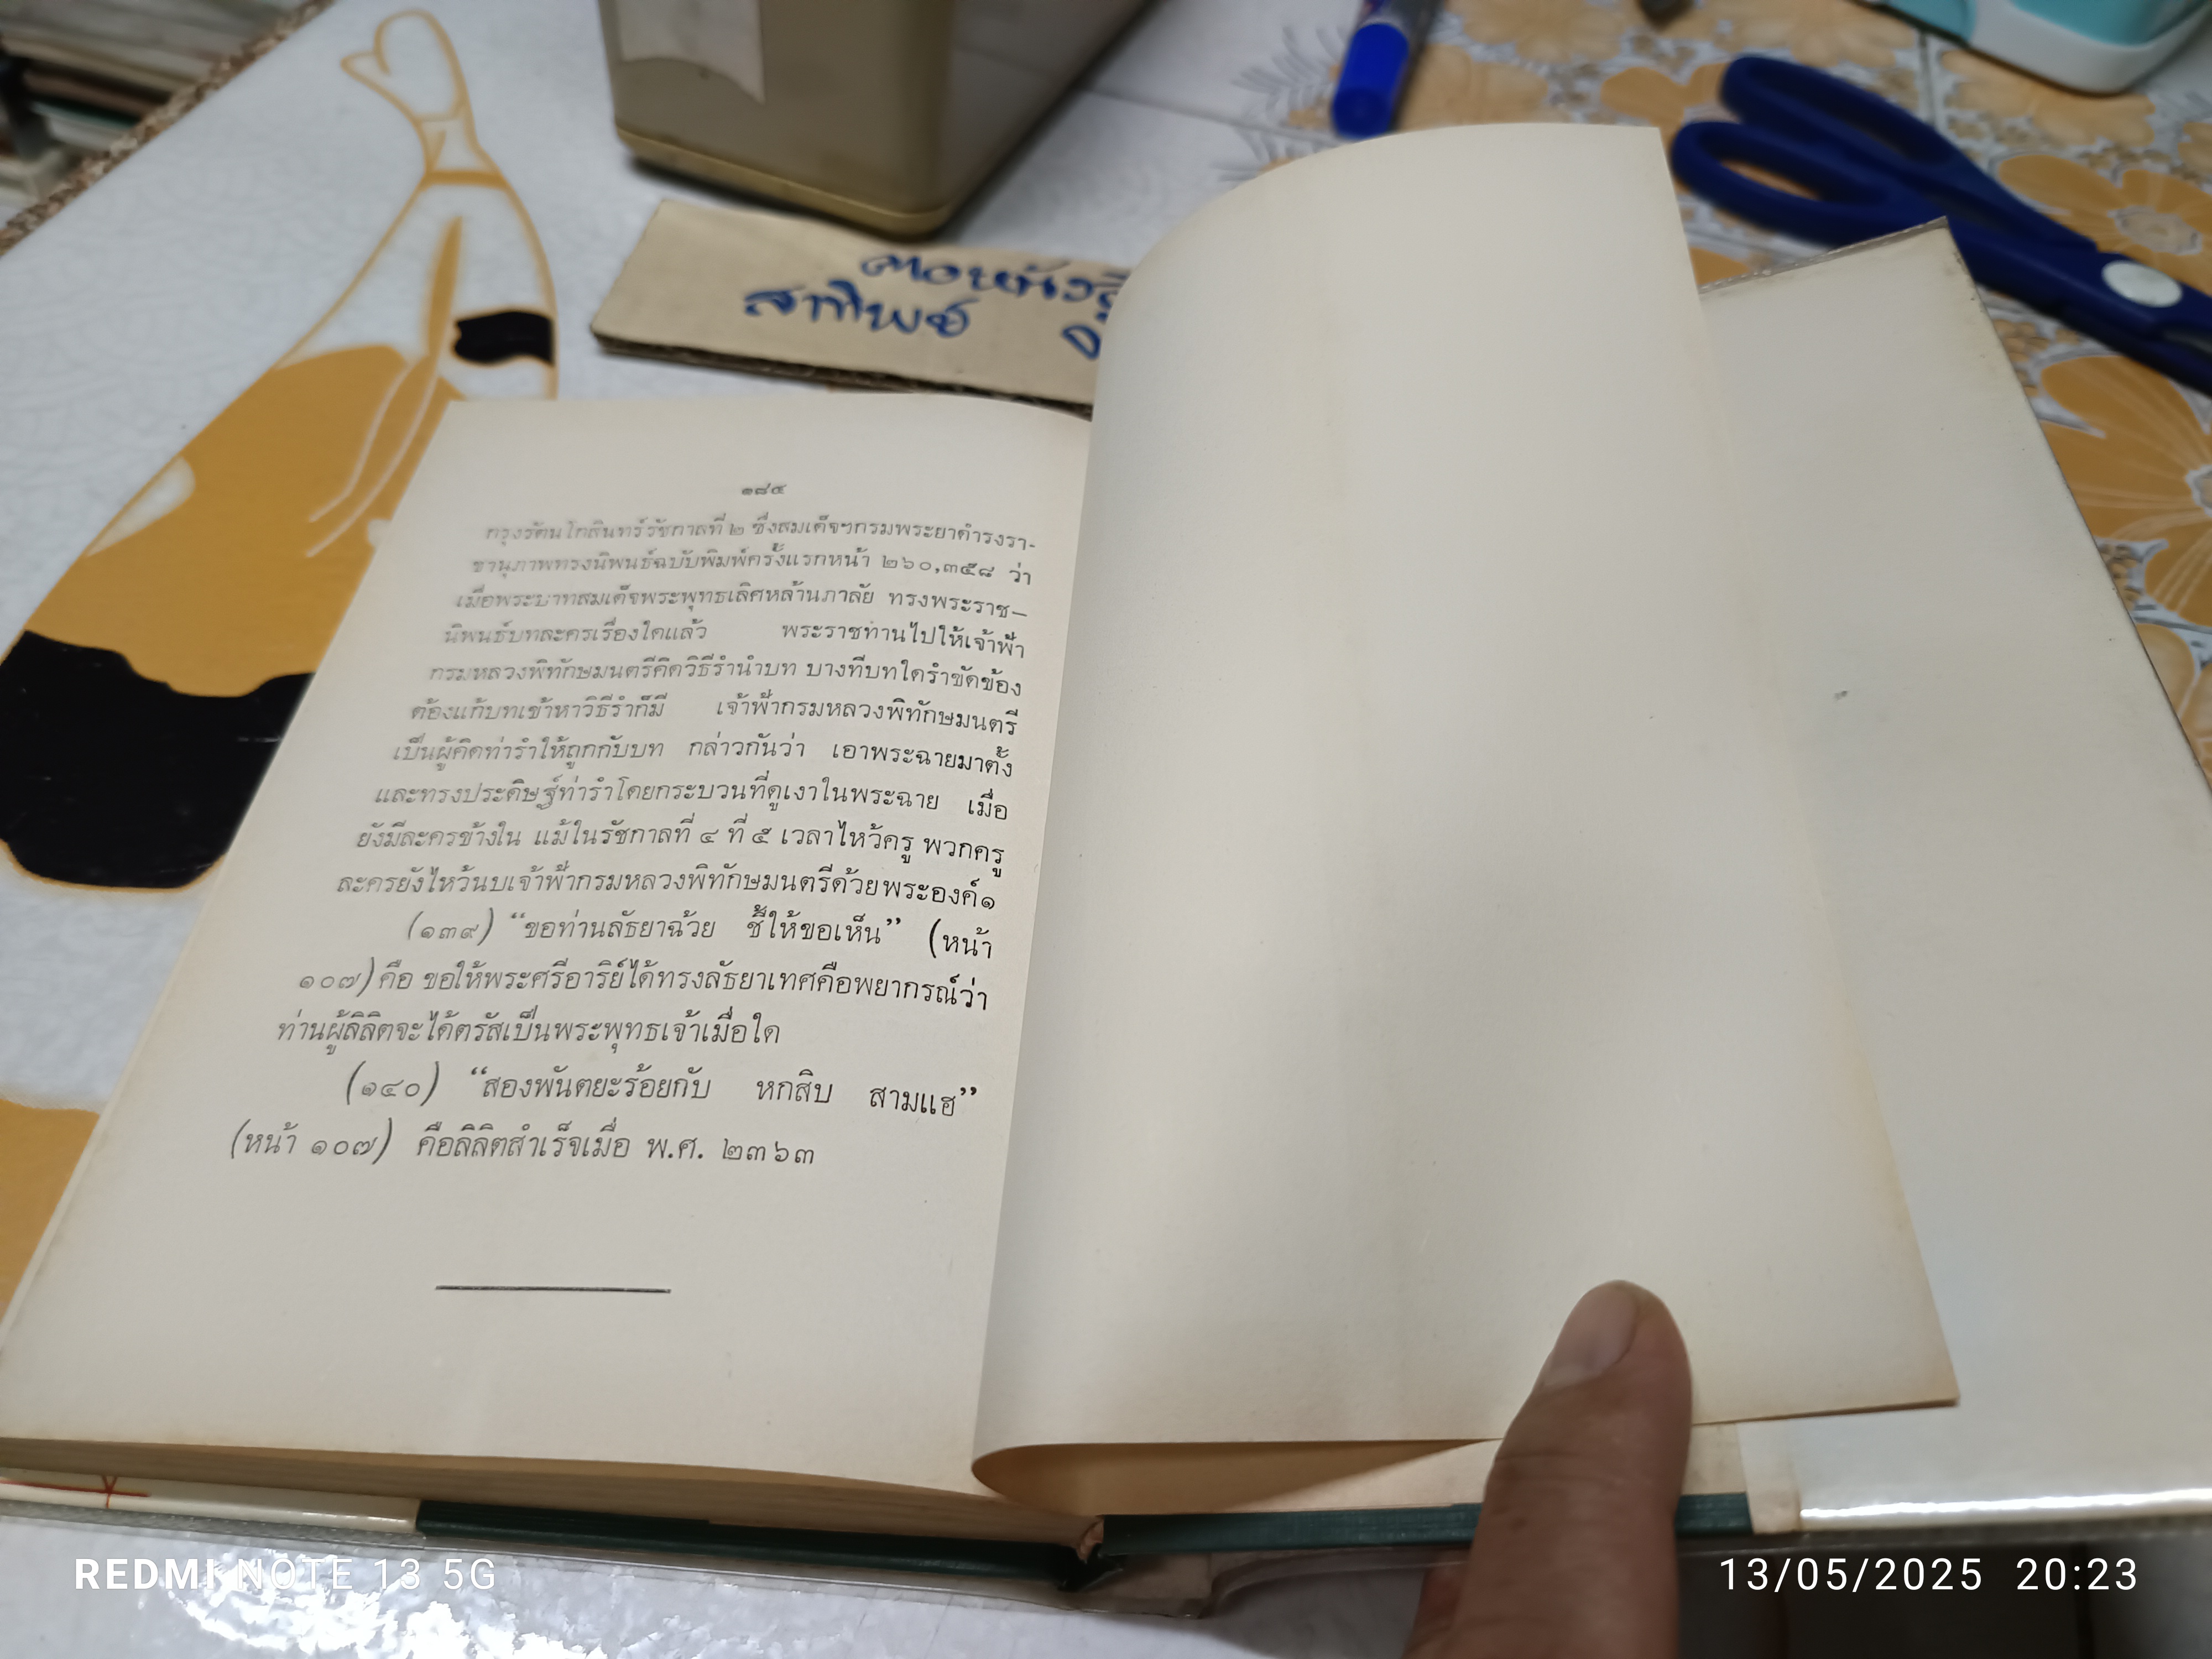 ศาลหนังสื
สาทิพย์
๑๘๕
กรุงรัตนโกสินทร์รัชกาลที่ ๒ ซึ่งสมเด็จฯกรมพระยาดำรงรา-
ชานุภาพทรงนิพนธ์ฉบับพิมพ์ครั้งแรกหน้า ๒๖๐,๓๕๘ ว่า
เมื่อพระบาทสมเด็จพระพุทธเลิศหล้านภาลัย ทรงพระราช–
นิพนธ์บทละครเรื่องใดแล้ว พระราชทานไปให้เจ้าฟ้า
กรมหลวงพิทักษมนตรีคิดวิธีรำนำบท บางทีบทใดรำขัดข้อง
ต้องแก้บทเข้าหาวิธีรำก็มี เจ้าฟ้ากรมหลวงพิทักษมนตรี
เป็นผู้คิดท่ารำให้ถูกกับบท กล่าวกันว่า เอาพระฉายมาตั้ง
และทรงประดิษฐ์ท่ารำโดยกระบวนที่ดูเงาในพระฉาย เมื่อ
ยังมีละครข้างใน แม้ในรัชกาลที่ ๔ ที่ ๕ เวลาไหว้ครู พวกครู
ละครยังไหว้นบเจ้าฟ้ากรมหลวงพิทักษมนตรีด้วยพระองค์๑
(๑๓๙) “ขอท่านลัธยาฉ้วย ชี้ให้ขอเห็น” (หน้า
๑๐๗) คือ ขอให้พระศรีอาริย์ได้ทรงลัธยาเทศคือพยากรณ์ว่า
ท่านผู้ลิลิตจะได้ตรัสเป็นพระพุทธเจ้าเมื่อใด
(๑๔๐) “สองพันตยะร้อยกับ หกสิบ สามแฮ”
(หน้า ๑๐๗) คือลิลิตสำเร็จเมื่อ พ.ศ. ๒๓๖๓
REDMI NOTE 13 5G
13/05/2025 20:23